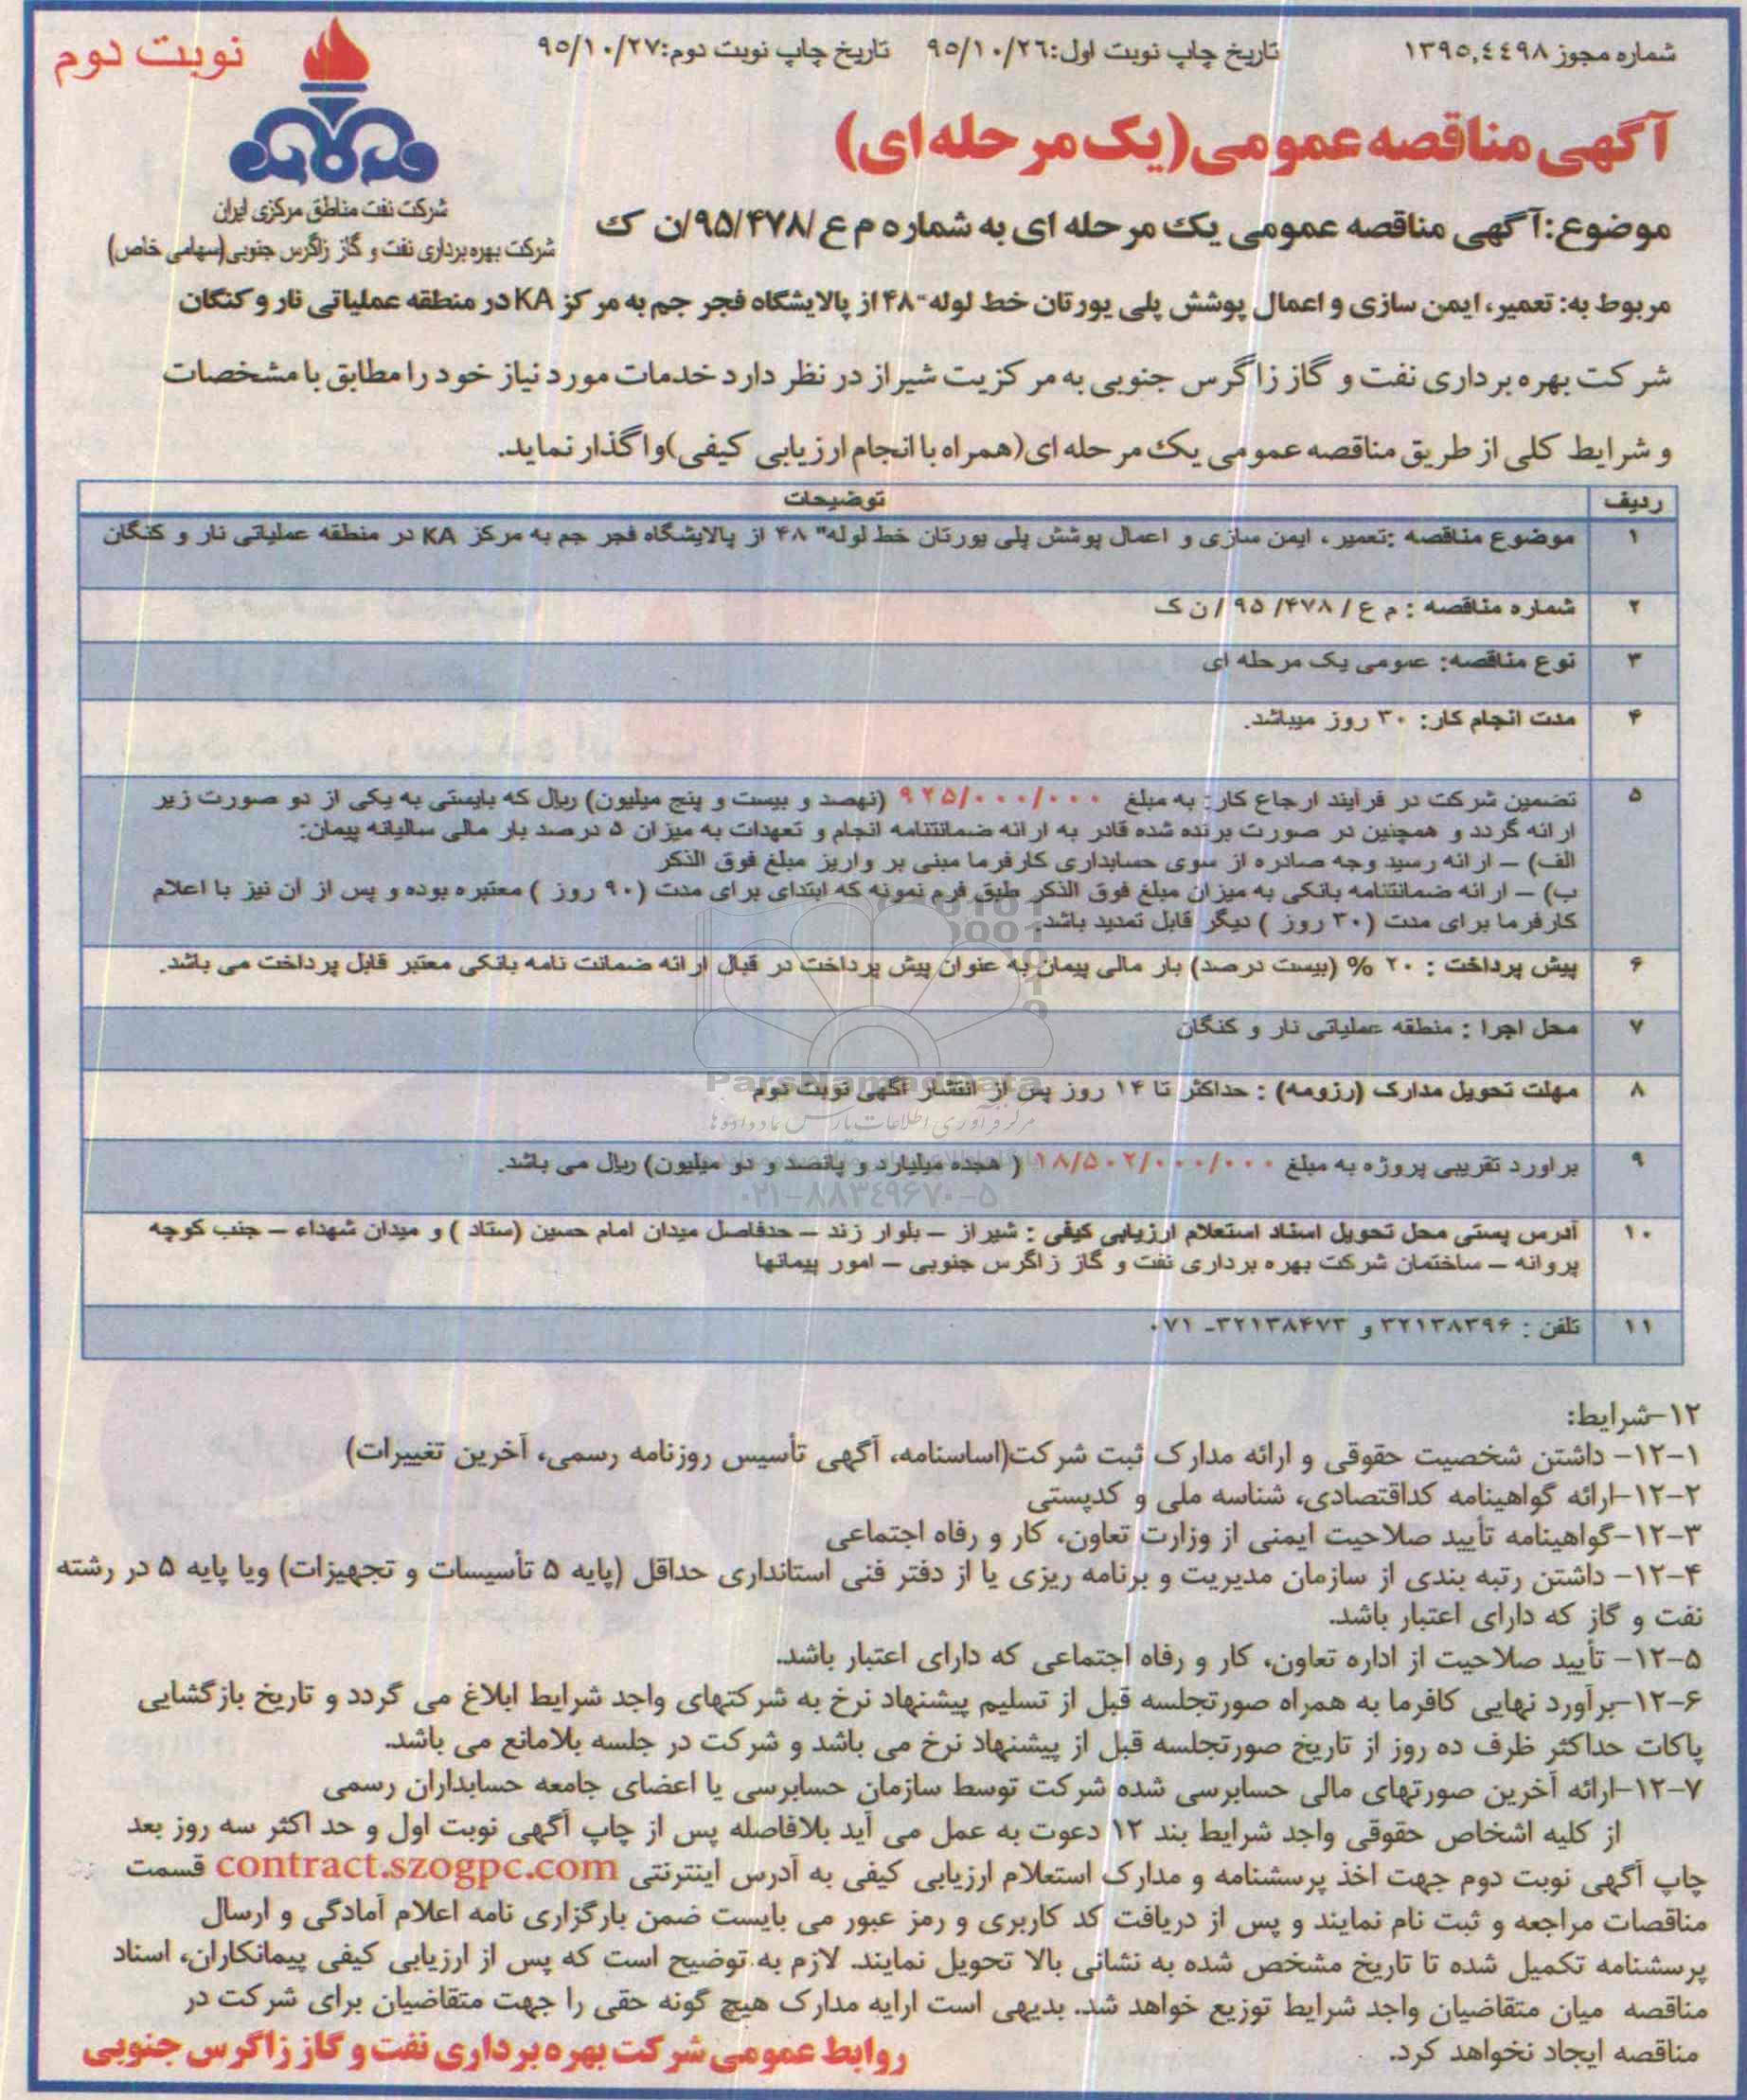 شماره مجوز ۱۳۹۵,٤٤۹۸
تاریخ چاپ نوبت اول:۹۵/۱۰/۲٦
تاریخ چاپ نوبت دوم:۹۵/۱۰/۲۷
نوبت دوم
آگهی مناقصه عمومی(یک مرحله ای)
شرکت نفت مناطق مرکزی ایران
شرکت بهره برداری نفت و گاز زاگرس جنوبی(سهامی خاص)
موضوع:آگهی مناقصه عمومی یک مرحله ای به شماره م ع/۹۵/۴۷۸/ن ک
مربوط به: تعمیر، ایمن سازی و اعمال پوشش پلی یورتان خط لوله"۴۸ از پالایشگاه فجر جم به مرکز KA در منطقه عملیاتی نار و کنگان
شرکت بهره برداری نفت و گاز زاگرس جنوبی به مرکزیت شیراز در نظر دارد خدمات مورد نیاز خود را مطابق با مشخصات
و شرایط کلی از طریق مناقصه عمومی یک مرحله ای(همراه با انجام ارزیابی کیفی)واگذار نماید.
ردیف توضیحات
۱ موضوع مناقصه :تعمیر ، ایمن سازی و اعمال پوشش پلی یورتان خط لوله" ۴۸ از پالایشگاه فجر جم به مرکز KA در منطقه عملیاتی نار و کنگان
۲ شماره مناقصه : م ع / ۴۷۸/ ۹۵ / ن ک
۳ نوع مناقصه: عمومی یک مرحله ای
۴ مدت انجام کار: ۳۰ روز میباشد.
۵ تضمین شرکت در فرآیند ارجاع کار: به مبلغ ۹۲۵/۰۰۰/۰۰۰ (نهصد و بیست و پنج میلیون) ریال که بایستی به یکی از دو صورت زیر
ارائه گردد و همچنین در صورت برنده شده قادر به ارائه ضمانتنامه انجام و تعهدات به میزان ۵ درصد بار مالی سالیانه پیمان:
الف) – ارائه رسید وجه صادره از سوی حسابداری کارفرما مبنی بر واریز مبلغ فوق الذکر
ب) – ارائه ضمانتنامه بانکی به میزان مبلغ فوق الذکر طبق فرم نمونه که ابتدای برای مدت (۹۰ روز ) معتبره بوده و پس از آن نیز با اعلام
کارفرما برای مدت (۳۰ روز ) دیگر قابل تمدید باشد.
۶ پیش پرداخت : ۲۰ % (بیست درصد) بار مالی پیمان به عنوان پیش پرداخت در قبال ارائه ضمانت نامه بانکی معتبر قابل پرداخت می باشد.
۷ محل اجرا : منطقه عملیاتی نار و کنگان
۸ مهلت تحویل مدارک (رزومه) : حداکثر تا ۱۴ روز پس از انتشار آگهی نوبت دوم
ParsNamadData
مرکز فرآوری اطلاعات پارس نماد داده ها
۹ برآورد تقریبی پروژه به مبلغ ۱۸/۵۰۲/۰۰۰/۰۰۰ ( هجده میلیارد و پانصد و دو میلیون) ریال می باشد.
۰۲۱-۸۸۳٤۹٦۷۰-۵
۱۰ آدرس پستی محل تحویل اسناد استعلام ارزیابی کیفی : شیراز – بلوار زند – حدفاصل میدان امام حسین (ستاد ) و میدان شهداء – جنب کوچه
پروانه – ساختمان شرکت بهره برداری نفت و گاز زاگرس جنوبی – امور پیمانها
۱۱ تلفن : ۳۲۱۳۸۳۹۶ و ۳۲۱۳۸۴۷۳- ۰۷۱
۱۲-شرایط:
۱۲-۱- داشتن شخصیت حقوقی و ارائه مدارک ثبت شرکت(اساسنامه، آگهی تأسیس روزنامه رسمی، آخرین تغییرات)
۱۲-۲-ارائه گواهینامه کداقتصادی، شناسه ملی و کدپستی
۱۲-۳-گواهینامه تأیید صلاحیت ایمنی از وزارت تعاون، کار و رفاه اجتماعی
۱۲-۴- داشتن رتبه بندی از سازمان مدیریت و برنامه ریزی یا از دفتر فنی استانداری حداقل (پایه ۵ تأسیسات و تجهیزات) ویا پایه ۵ در رشته
نفت و گاز که دارای اعتبار باشد.
۱۲-۵- تأیید صلاحیت از اداره تعاون، کار و رفاه اجتماعی که دارای اعتبار باشد.
۱۲-۶-برآورد نهایی کافرما به همراه صورتجلسه قبل از تسلیم پیشنهاد نرخ به شرکتهای واجد شرایط ابلاغ می گردد و تاریخ بازگشایی
پاکات حداکثر ظرف ده روز از تاریخ صورتجلسه قبل از پیشنهاد نرخ می باشد و شرکت در جلسه بلامانع می باشد.
۱۲-۷-ارائه آخرین صورتهای مالی حسابرسی شده شرکت توسط سازمان حسابرسی یا اعضای جامعه حسابداران رسمی
از کلیه اشخاص حقوقی واجد شرایط بند ۱۲ دعوت به عمل می آید بلافاصله پس از چاپ آگهی نوبت اول و حد اکثر سه روز بعد
چاپ آگهی نوبت دوم جهت اخذ پرسشنامه و مدارک استعلام ارزیابی کیفی به آدرس اینترنتی contract.szogpc.com قسمت
مناقصات مراجعه و ثبت نام نمایند و پس از دریافت کد کاربری و رمز عبور می بایست ضمن بارگزاری نامه اعلام آمادگی و ارسال
پرسشنامه تکمیل شده تا تاریخ مشخص شده به نشانی بالا تحویل نمایند. لازم به توضیح است که پس از ارزیابی کیفی پیمانکاران، اسناد
مناقصه میان متقاضیان واجد شرایط توزیع خواهد شد. بدیهی است ارایه مدارک هیچ گونه حقی را جهت متقاضیان برای شرکت در
مناقصه ایجاد نخواهد کرد.
روابط عمومی شرکت بهره برداری نفت و گاز زاگرس جنوبی